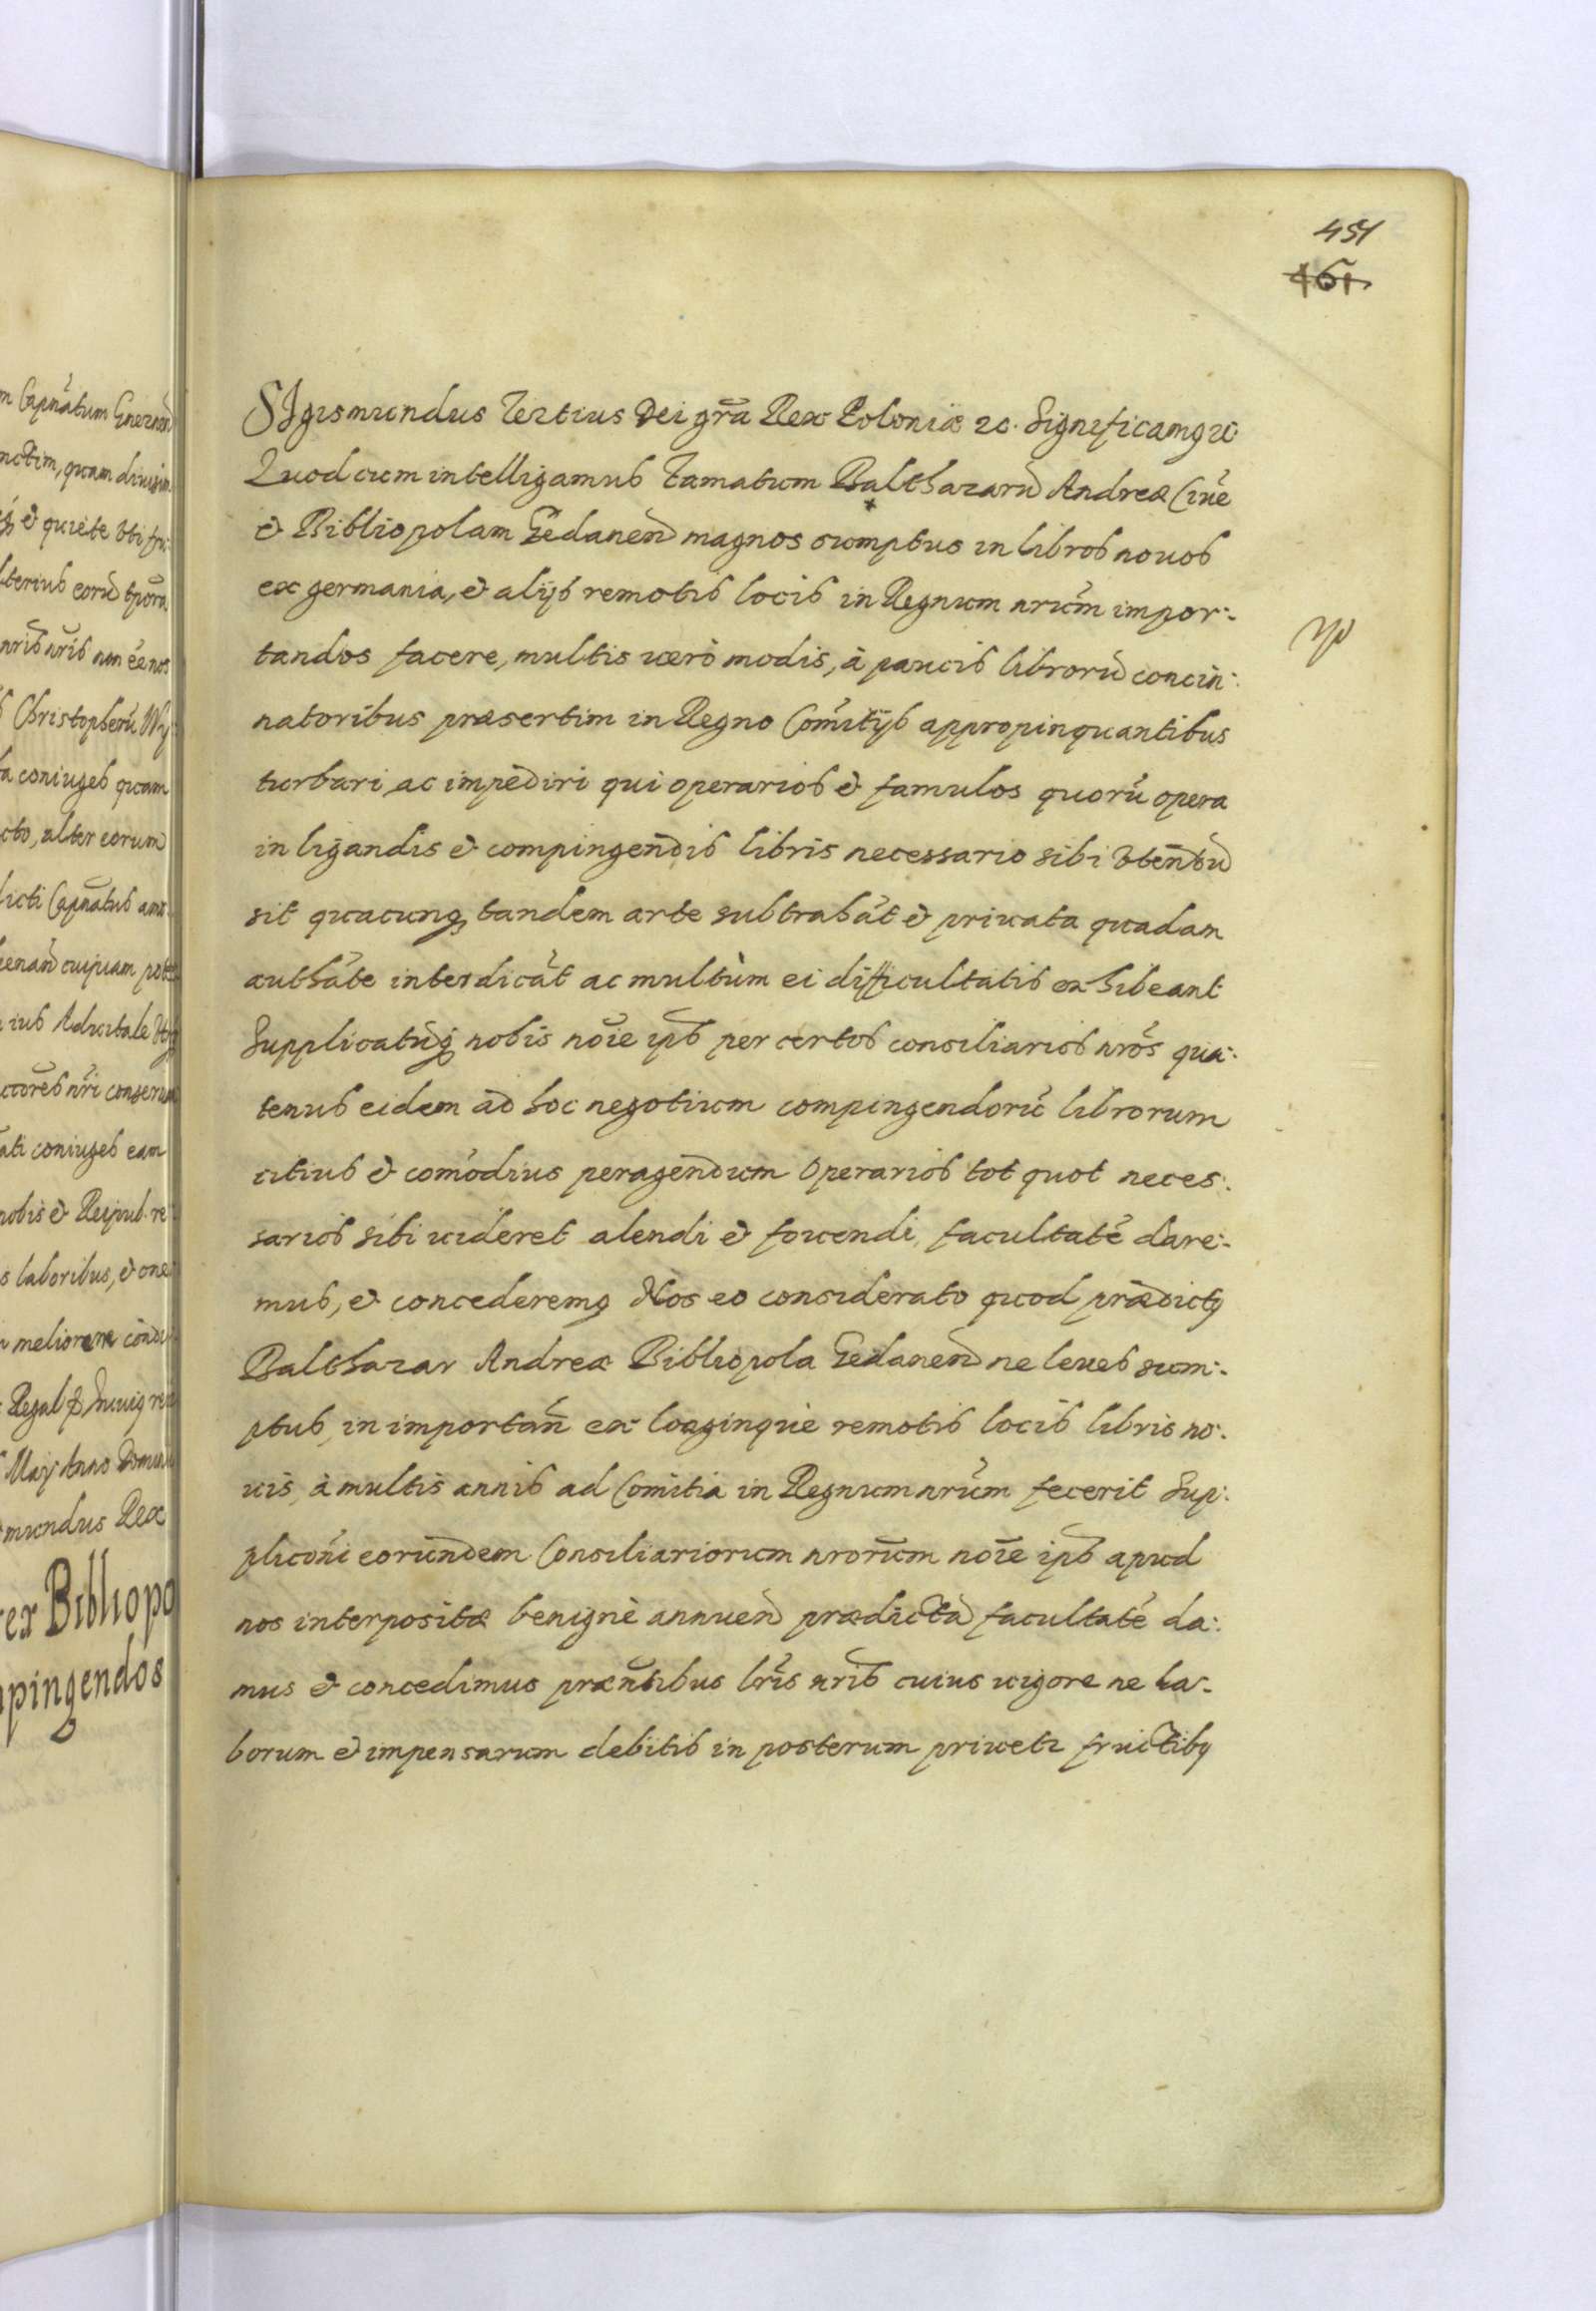 451
461
SIgismundus Tertius Dei gr̃a Rex Poloniæ ꝛc. Significamꝰ ꝛc
Quod cum intelligamus famatum Balthazarũ Andreæ Ciuẽ
et Bibliopolam Gedaneñ magnos sumptus in libros nouos
ex germania, et alijs remotis locis in Regnum nrũm impor:
tandos facere, multis verò modis, à paucis librorũ concin:
natoribus præsertim in Regno Comĩtijs appropinquantibus
turbari ac impediri qui operarios et famulos quorũ opera
in ligandis et compingendis libris necessario sibi vtendũ
sit quacunqꝫ tandem arte subtrahãt et priuata quadam
authãte interdicãt ac multùm ei difficultatis exhibeant
Supplicatũqꝫ nobis noĩe ipĩs per certos consiliarios nrõs qua:
tenus eidem ad hoc negotium compingendorũ librorum
citius et comõdius peragendum operarios tot quot neces:
sarios sibi uideret alendi et fouendi, facultatẽ dare:
mus, et concederemꝰ Nos eo considerato quod prædictꝰ
Balthazar Andreæ Bibliopola Gedaneñ ne leues sum:
ptus, in importañ ex longinque remotis locis libris no:
uis, à multis annis ad Comitia in Regnum nrũm fecerit Sup:
plicõni eorundem Consiliariorum nrorũm noĩe ipĩs apud
nos interpositæ benignè annueñ prædictã facultatẽ da:
mus et concedimus præñtibus lrĩs nrĩs cuius uigore ne la:
borum et impensarum debitis in posterum priuetr fructibꝰ
m Capñatum
nctim, quam diuisim
et quiete vti fru:
lterius eorũ tpõra
nrĩs non
Christopherũ
a coniuges quam
cto, alter eorum
licti Capñatus
cuipiam
ius Aduitale
nrĩ
ati coniuges eam
nobis et Reipub. re
s laboribus, et
meliorem
Regal
Maij Anno Domini
mundus Rex
Bibliopo
mpingendos